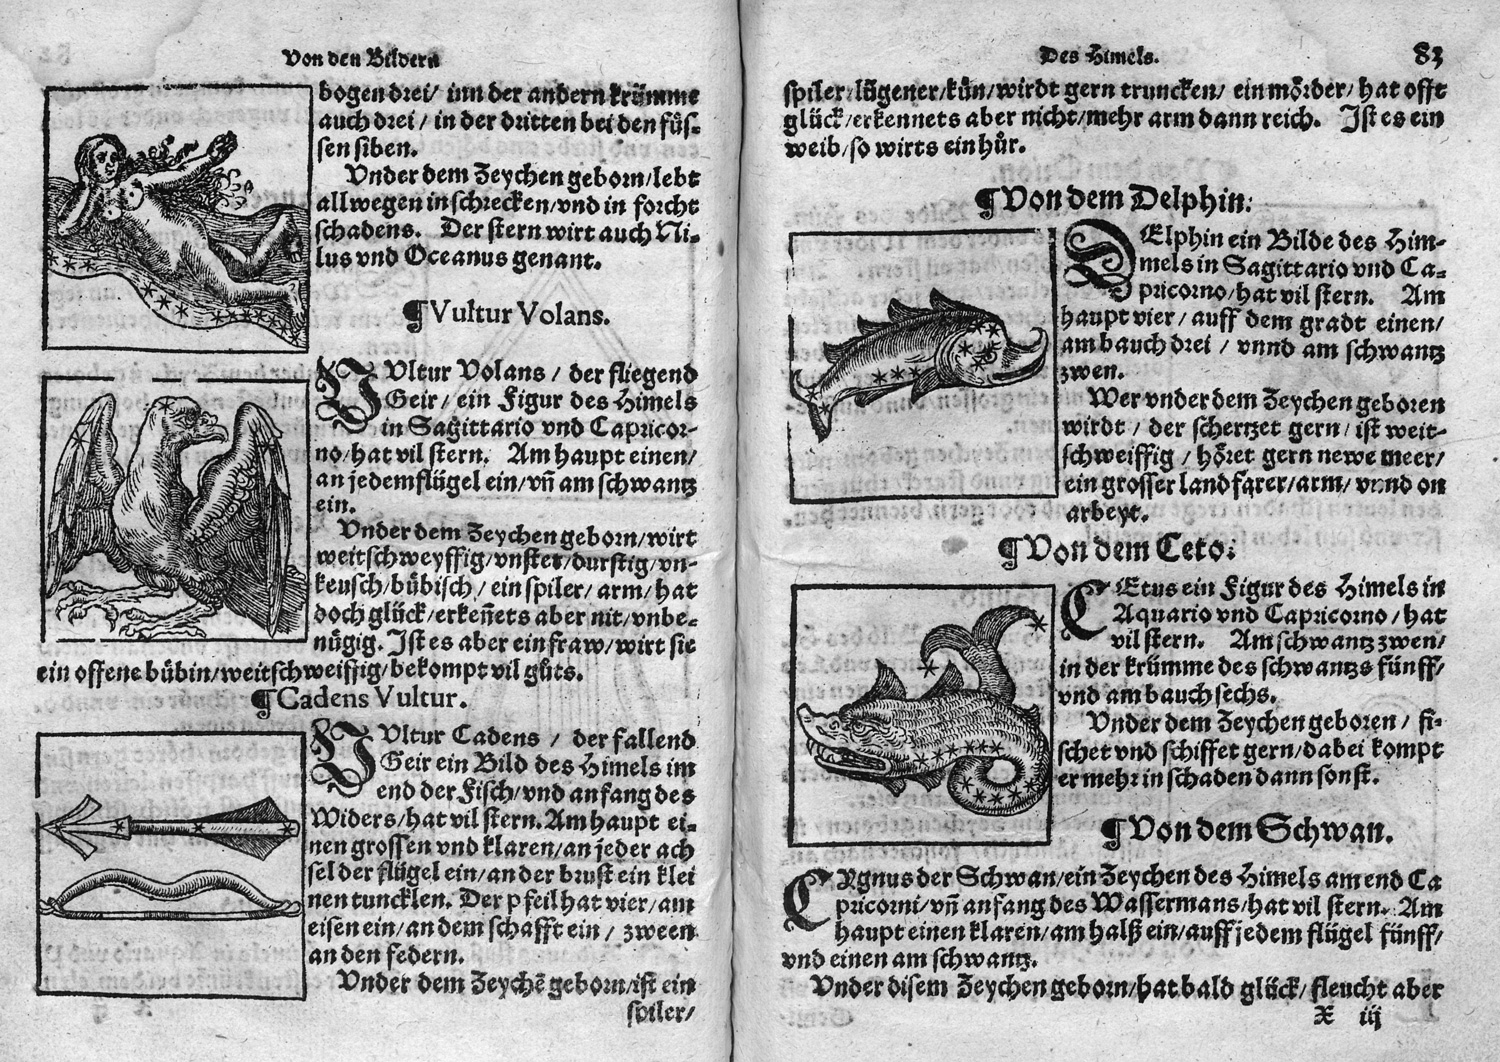 Von den Bildern
bogen drei/ inn der andern krümme
auch drei/ in der dritten bei den füs-
sen siben.
Vnder dem Zeychen geborn/lebt
allwegen in schrecken/vnd in forcht
schadens. Der stern wirt auch Ni-
lus vnd Oceanus genant.
¶Vultur Volans.
VVltur Volans / der fliegend
Geir/ ein Figur des Himels
in Sagittario vnd Capricor-
no/hat vil stern. Am haupt einen/
an jedem flügel ein/vñ am schwantz
ein.
Vnder dem Zeychen geborn/wirt
weitschweyffig/vnstet/durstig/vn-
keusch/bübisch/ ein spiler/ arm/ hat
doch glück/erkeñets aber nit/vnbe-
nügig. Ist es aber ein fraw/wirt sie
ein offene bübin/weitschweiffig/bekompt vil gůts.
¶Cadens Vultur.
VVltur Cadens / der fallend
Geir ein Bild des Himels im
end der Fisch/vnd anfang des
Widers/hat vil stern. Am haupt ei-
nen grossen vnd klaren/an jeder ach
sel der flügel ein/an der brust ein klei
nen tuncklen. Der pfeil hat vier/am
eisen ein/an dem schafft ein/ zween
an den federn.
Vnder dem Zeychē geborn/ist ein
spiler/
Des Himels. 83
spiler/lügener/kün/wirdt gern truncken/ ein mörder/ hat offt
glück/erkennets aber nicht/mehr arm dann reich. Ist es ein
weib/so wirts ein hůr.
¶Von dem Delphin:
DElphin ein Bilde des Him-
mels in Sagittario vnd Ca-
pricorno/hat vil stern. Am
haupt vier/ auff dem gradt einen/
am bauch drei / vnnd am schwantz
zwen.
Wer vnder dem Zeychen geboren
wirdt / der schertzet gern/ ist weit-
schweiffig / höret gern newe meer/
ein grosser landfarer/arm/ vnnd on
arbeyt.
¶Von dem Ceto:
CEtus ein Figur des Himels in
Aquario vnd Capricorno/hat
vil stern. Am schwantz zwen/
in der krümme des schwantzs fünff/
vnd am bauch sechs.
Vnder dem Zeychen geboren/ fi-
schet vnd schiffet gern/dabei kompt
er mehr in schaden dann sonst.
¶Von dem Schwan.
CYgnus der Schwan/ein Zeychen des Himels am end Ca
pricorni/vñ anfang des Wassermans/hat vil stern. Am
haupt einen klaren/am halß ein/auff jedem flügel fünff/
vnd einen am schwantz.
Vnder disem Zeychen geborn/hat bald glück/ fleucht aber
X iij